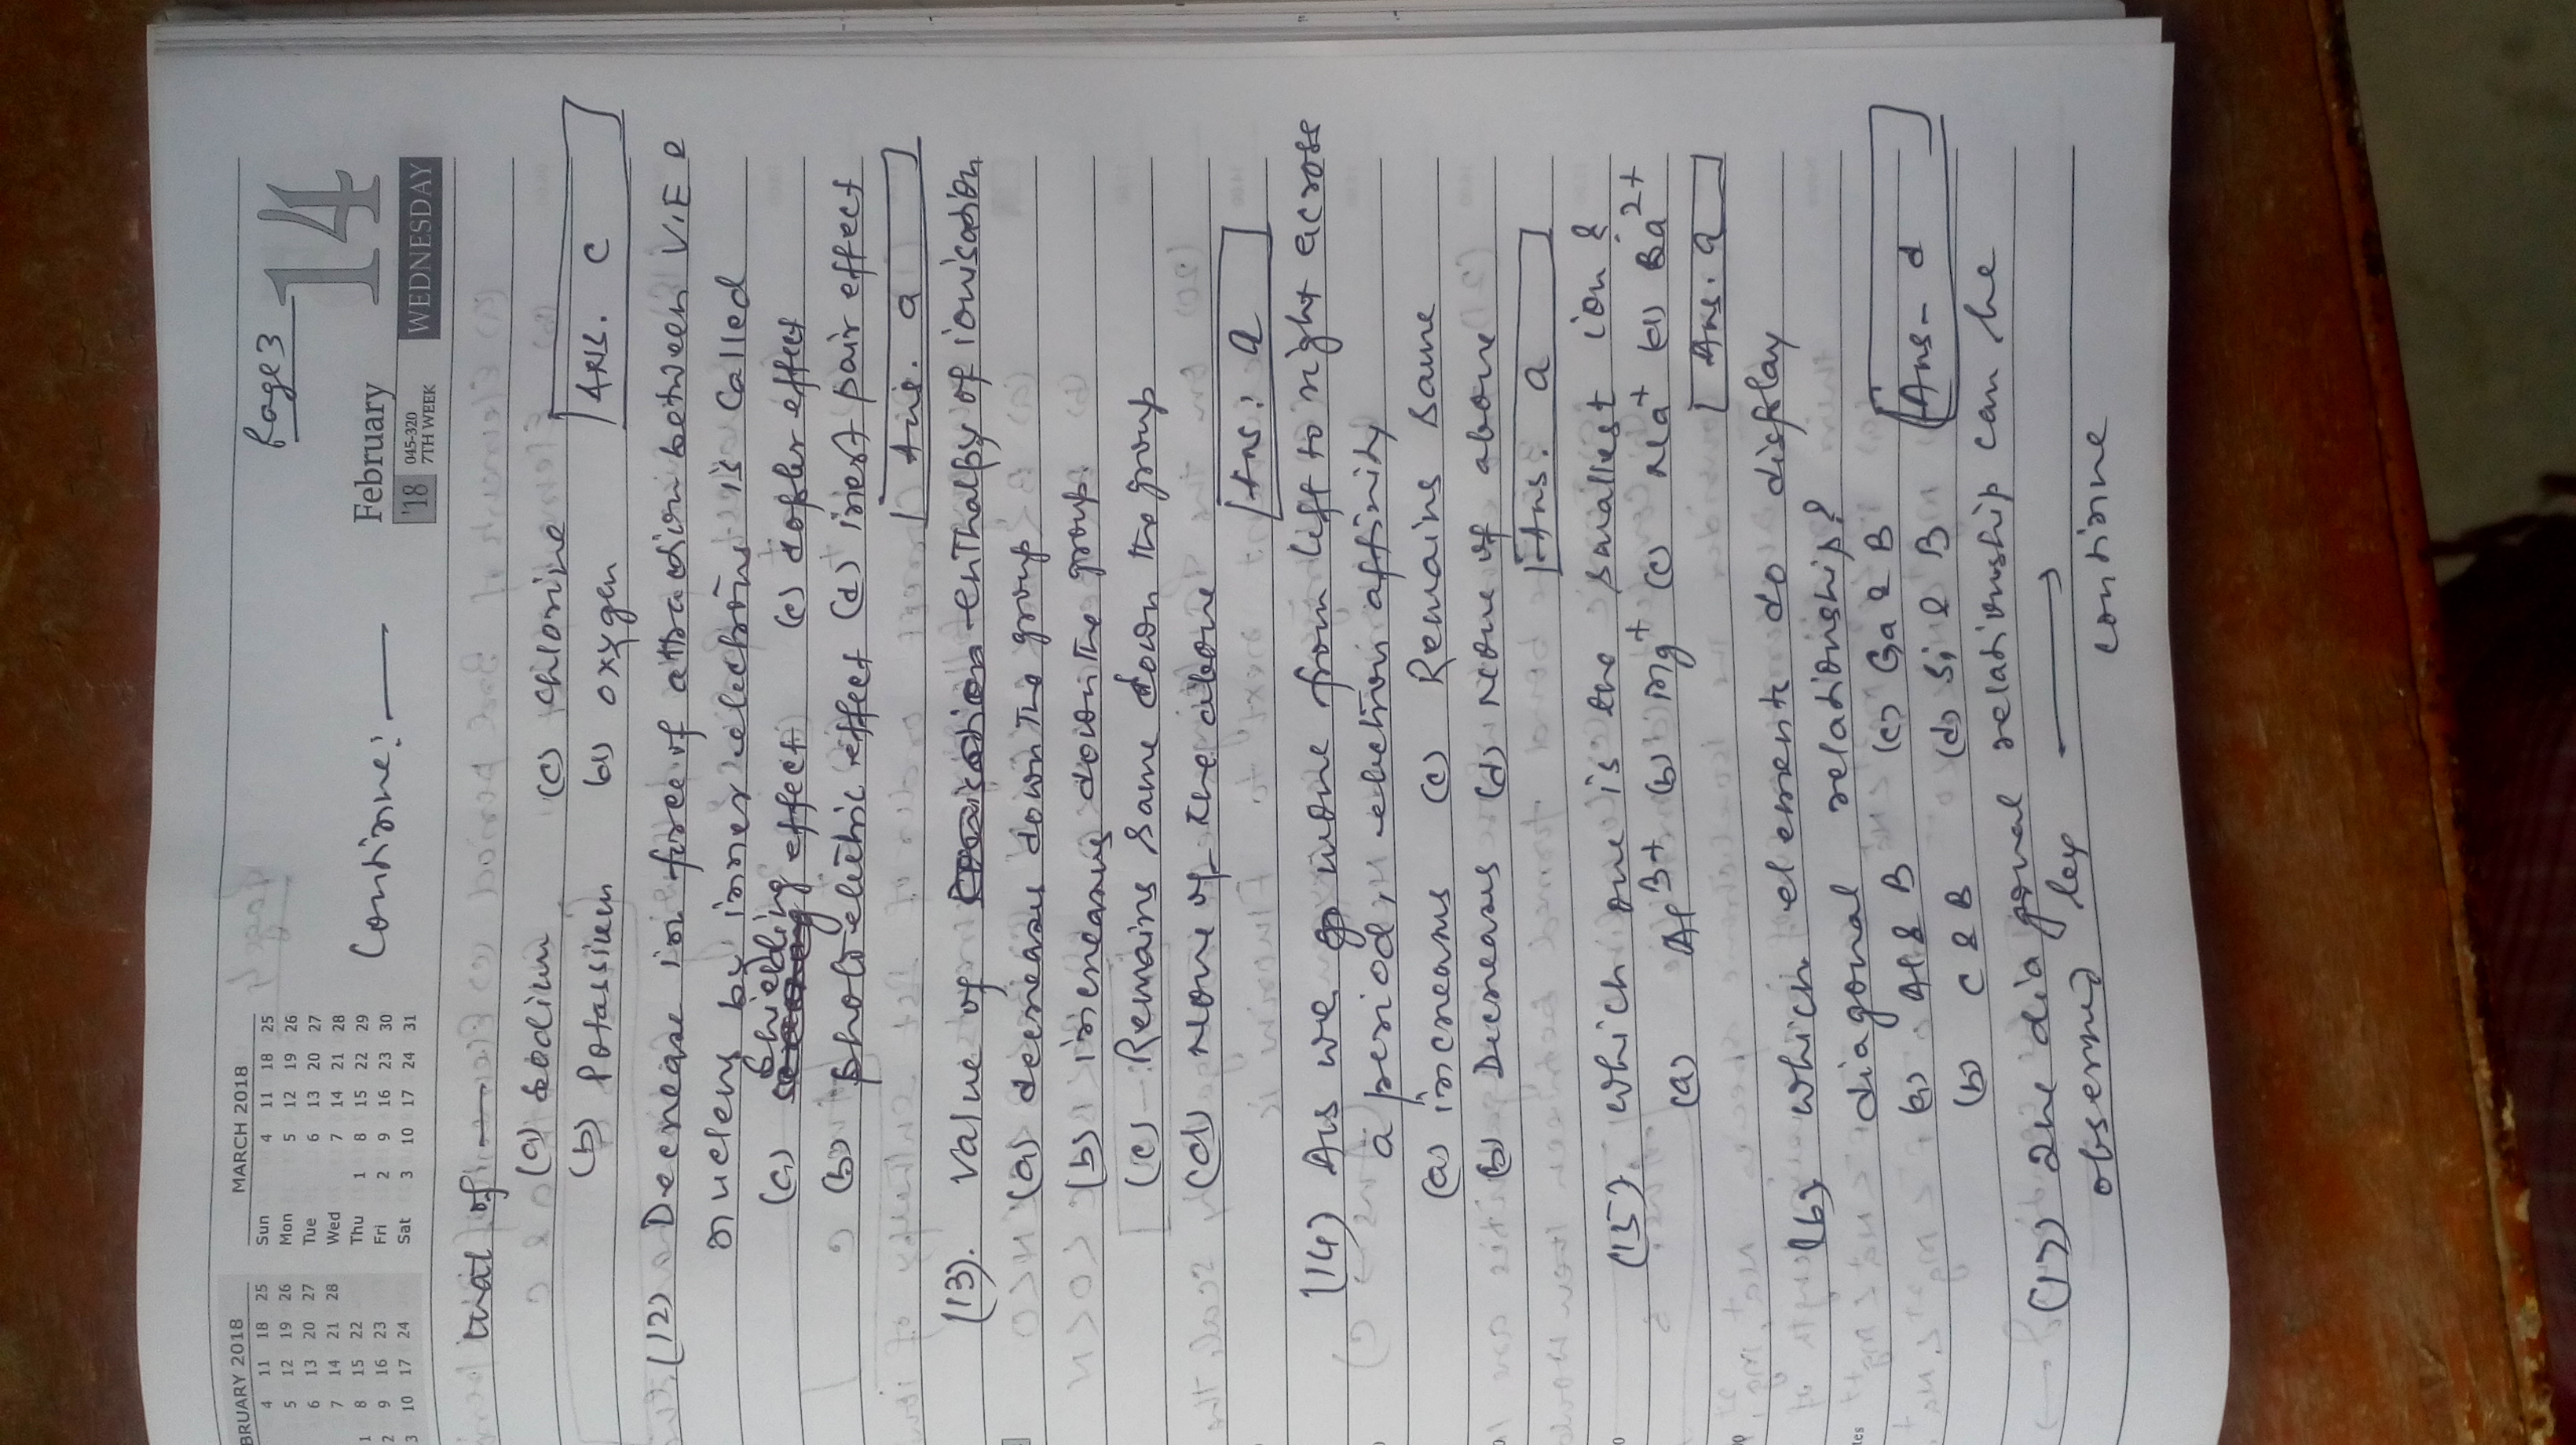 Page 3
FEBRUARY 2018
4 11 18 25
5 12 19 26
6 13 20 27
7 14 21 28
1 8 15 22
2 9 16 23
3 10 17 24
MARCH 2018
Sun 4 11 18 25
Mon 5 12 19 26
Tue 6 13 20 27
Wed 7 14 21 28
Thu 1 8 15 22 29
Fri 2 9 16 23 30
Sat 3 10 17 24 31
Continue:
February 14
'18 045-320 7TH WEEK WEDNESDAY
that of —
(a) sodium (c) chlorine
(b) Potassium (d) oxygen
Ans. C
(12) Decrease in force of attraction between V.E &
nucleus by inner electrons is called
(a) Shielding effect (c) dopler effect
(b) photo eletric effect (d) inert pair effect
Ans. a
(13). value of enthalpy of ionisation
(a) decreases down the group
(b) increasing down the group.
(c) Remains same down the group
(d) None of the above
Ans: a
(14) As we move from left to right across
a period, electron affinity
(a) increases (c) Remains same
(b) Decreases (d) None of above
Ans. a
(15) which one is the smallest ion?
(a) Al3+ (b) Mg+ (c) Na+ (d) Ba2+
Ans. a
(16) which elements do display
diagonal relationship?
(a) Al & B (c) Ga & B
(b) C & B (d) Si & B
Ans - d
(17) The diagonal relationship can be
observed by
continue